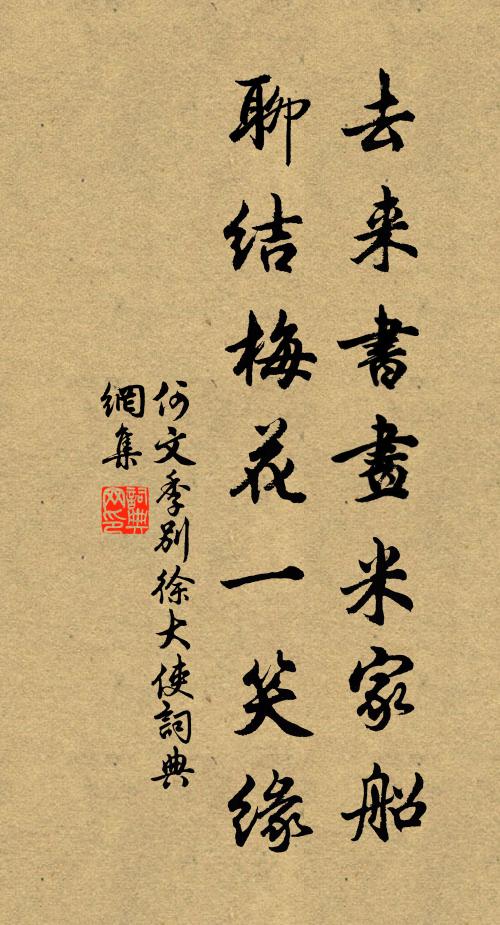 去来書畫米家船
聊结梅花一笑缘
何文季别徐大使詞典
網集
詞典網印